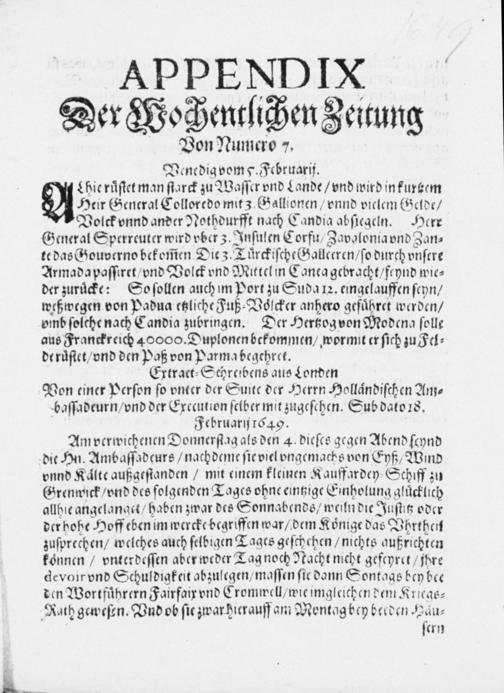 1649
APPENDIX
Der Wochentlichen Zeitung
Von Numero 7.
Venedig vom 5. Februarij.
Alhie rüstet man starck zu Wasser vnd Lande / vnd wird in kurtzem
Heir General Colloredo mit 3. Gallionen / vnnd vielem Gelde /
Volck vnnd ander Nothdurfft nach Candia absiegeln. Herr
General Sperreuter wird vber 3. Insulen Corfu / Zavalonia vnd Zan-
te das Gouverno bekom̃en. Die 3. Türckische Galleeren / so durch vnsere
Armada passiret / vnd Volck vnd Mittel in Canea gebracht / seynd wie-
der zurücke: So sollen auch im Port zu Suda 12. eingelauffen seyn /
weßwegen von Padua etzliche Fuß-Völcker anhero geführet werden /
vmb solche nach Candia zubringen. Der Hertzog von Modena solle
aus Franckreich 40000. Duplonen bekommen / wormit er sich zu Fel-
de rüstet / vnd den Paß von Parma begehret.
Extract-Schreibens aus Londen
Von einer Person so vnter der Suite der Herrn Holländischen Am-
bassadeurn / vnd der Execution selber mit zugesehen. Sub dato 18.
Februarij 1649.
Am verwichenen Donnerstag als den 4. dieses gegen Abend seynd
die Hn. Ambassadeurs / nachdeme sie viel vngemachs von Eyß / Wind
vnnd Kälte außgestanden / mit einem kleinen Kauffardey-Schiff zu
Grenwick / vnd des folgenden Tages ohne eintzige Einholung glücklich
allhie angelanget / haben zwar des Sonnabends / weiln die Justitz oder
der hohe Hoff eben im wercke begriffen war / dem Könige das Vhrtheil
zusprechen / welches auch selbigen Tages geschehen / nichts außrichten
können / vnterdessen aber weder Tag noch Nacht nicht gefeyret / jhre
devoir vnd Schuldigkeit abzulegen / massen sie dann Sontags bey bee
den Wortführern Fairfax vnd Cromwell / wie imgleichen dem Kriegs-
Rath gewesen. Vnd ob sie zwar hierauff am Montag bey beeden Häu-
sern